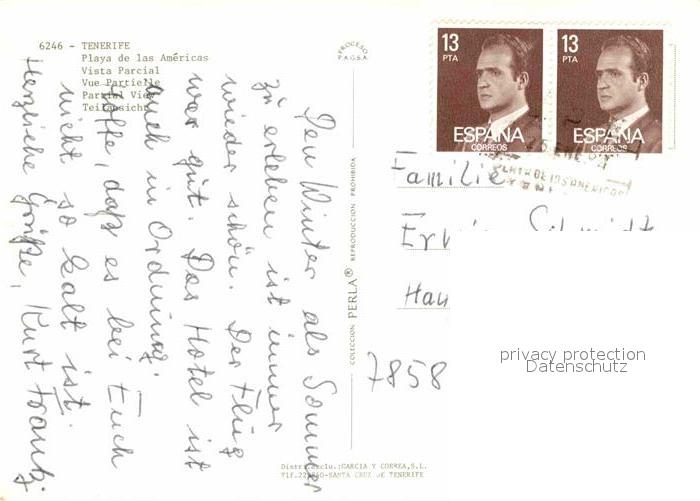 6246 - TENERIFE
Playa de las Américas
Vista Parcial
Vue Partielle
Partial View
Teilansicht
PROCESO
P.A.G.S.A.
13
PTA
ESPAÑA
CORREOS
13
PTA
ESPAÑA
CORREOS
PLAYA DE LAS AMERICAS
Den Winter als Sommer
zu erleben ist immer
wieder schön. Der Flug
war gut. Das Hotel ist
auch in Ordnung.
Hoffe, daß es bei Euch
nicht so kalt ist.
Herzliche Grüße, Kurt
COLECCION PERLA® REPRODUCCION PROHIBIDA
Familie
Schmidt
7858
privacy protection
Datenschutz
Distr. exclu.: GARCIA Y CORREA, S.L.
SANTA CRUZ DE TENERIFE